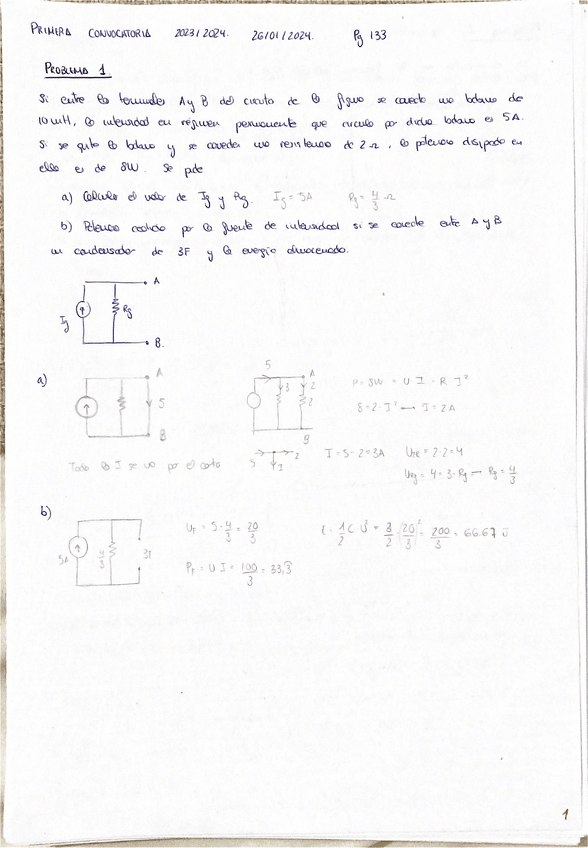 PRIMERA CONVOCATORIA 2023/2024. 26/01/2024. Pg 133
PROBLEMA 1.
Si entre los terminales A y B del circuito de la figura se conecta una bobina de
10 mH, la intensidad en régimen permanente que circula por dicha bobina es 5A.
Si se quita la bobina y se conecta una resistencia de 2 Ω, la potencia disipada en
ella es de 8W. Se pide
a) Calcular el valor de Ig y Rg. Ig = 5A Rg = 4/3 Ω
b) Potencia cedida por la fuente de intensidad si se conecta entre A y B
un condensador de 3F y la energía almacenada.
A
Ig Rg
B.
a) A 5 B
5 3 A 2 2 B
P = 8W = U I = R I²
8 = 2·I² → I = 2A
Todo la I se va por el corto
5 2 I I = 5-2 = 3A U2R = 2·2 = 4
URg = 4 = 3·Rg → Rg = 4/3
b)
5A 4/3 3F
UF = 5·4/3 = 20/3 E = 1/2 C U² = 3/2 (20/3)² = 200/3 = 66.67 J
PF = U I = 100/3 = 33,3
1